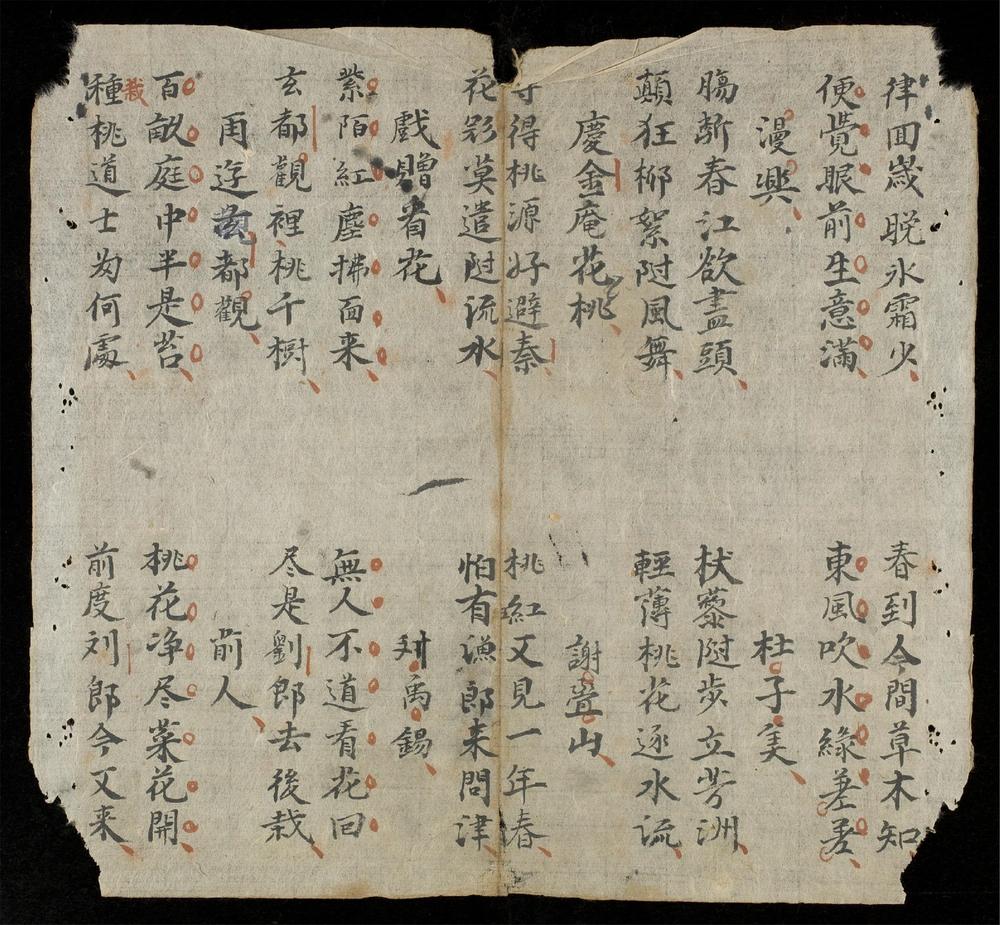 律囬歲晚氷霜少
春到今間草木知
便覺眼前生意滿
東風吹水綠差差
漫興
杜子美
腸斷春江欲盡頭
杖藜隨步立芳洲
顛狂柳絮隨風舞
輕薄桃花逐水流
慶金庵花桃
謝疊山
得桃源好避秦
桃紅又見一年春
花影莫遣随流水
怕有漁郎来問津
戲贈看花
刘禹錫
紫陌紅塵拂面来
無人不道看花回
玄都觀裡桃千樹
尽是劉郎去後栽
再遊玄都觀
前人
百畝庭中半是苔
桃花净尽菜花開
栽
種桃道士为何處
前度刘郎今又来